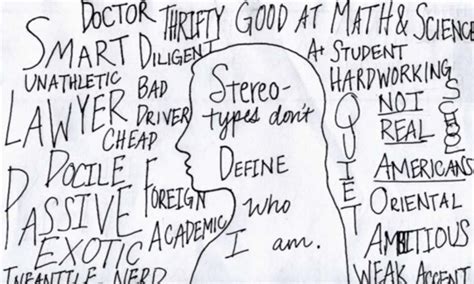 DOCTOR THRIFTY GOOD AT MATH & SCIENCE
SMART DILIGENT
A+ STUDENT
UNATHLETIC BAD
HARDWORKING
LAWYER DRIVER
CHEAP
Stereo-
types don't
DEFINE
Who
I am.
QUIET
NOT
REAL
AMERICANS
DOCILE FOREIGN
ORIENTAL
PASSIVE ACADEMIC
AMBITIOUS
EXOTIC
WEAK ACCENT
INFANTILE NERD